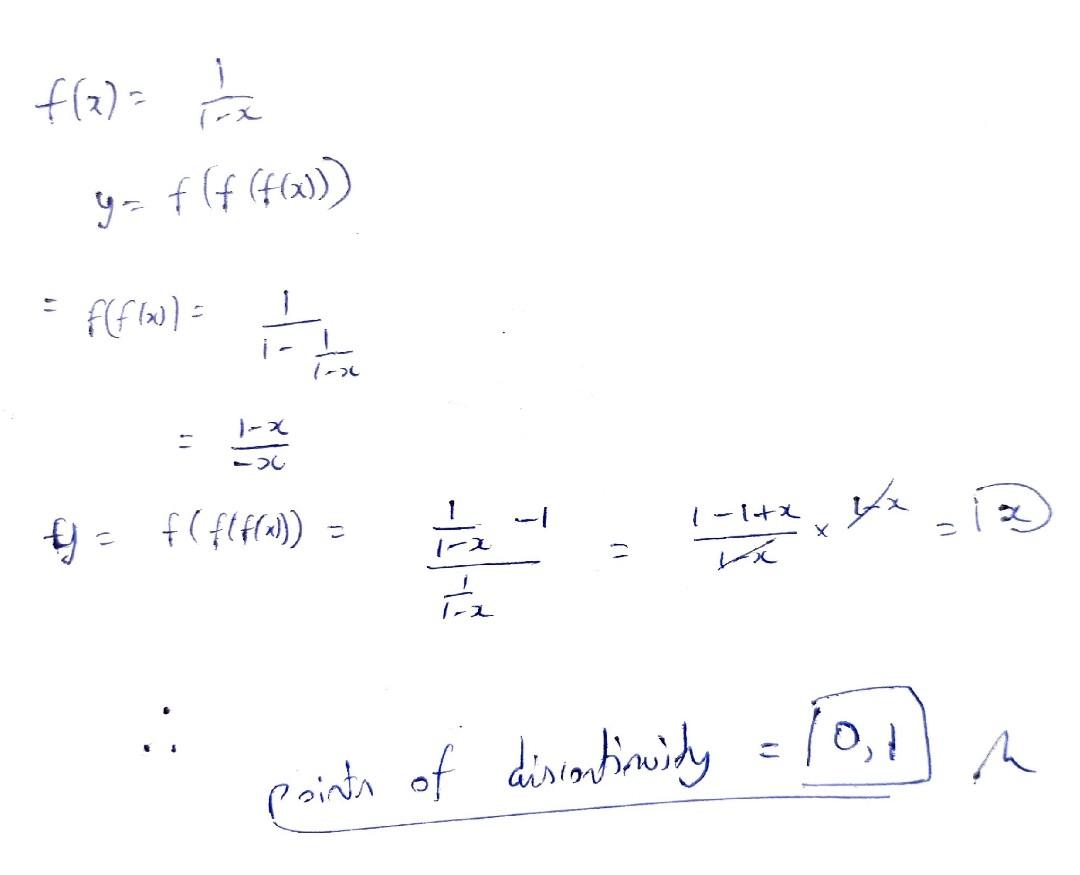 f(x) = 1/(1-x)
y = f(f(f(x)))
= f(f(x)) = 1/(1 - 1/(1-x))
= (1-x)/(-x)
y = f(f(f(x))) = (1/(1-x) - 1)/(1/(1-x)) = (1-1+x)/(1-x) × (1-x) = x
∴ points of discontinuity = 0,1